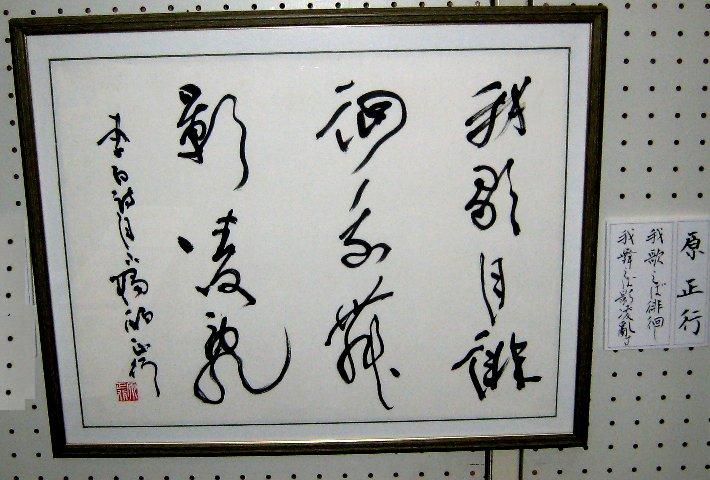 我歌月徘
徊我舞
影凌亂
李白詩月下獨酌 正行
原 正行
我歌えば徘徊し
我舞えば影凌亂す